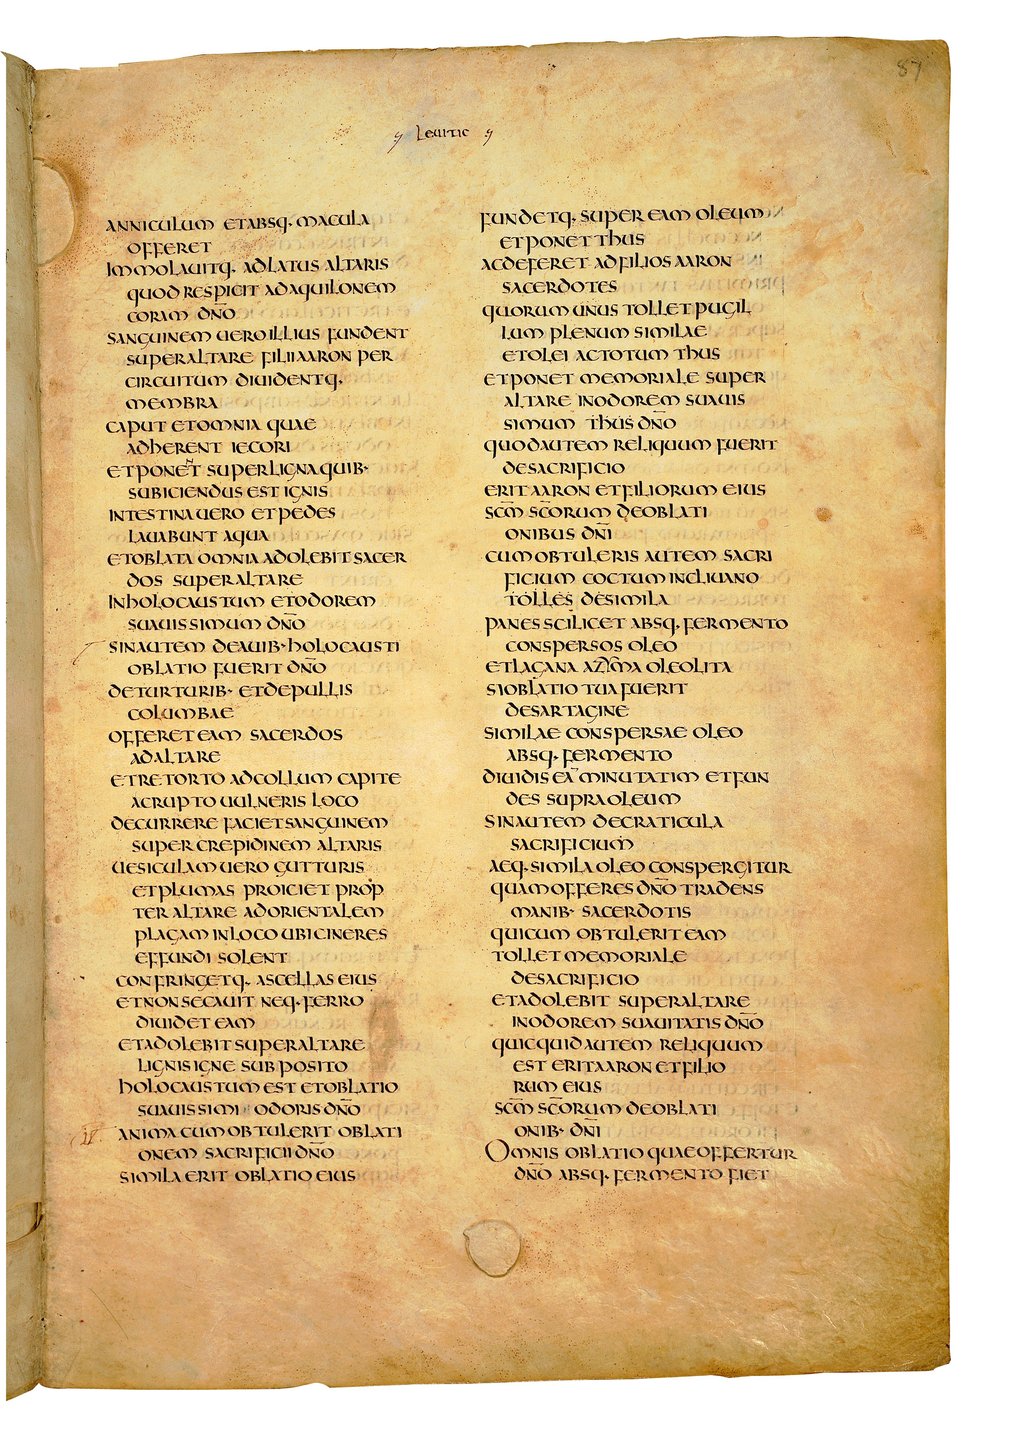 87
Leuitic
ANNICULUM ETABSQ· MACULA
OFFERET
IMMOLAUITQ· ADLATUS ALTARIS
QUOD RESPICIT ADAQUILONEM
CORAM DN̄O
SANGUINEM UEROILLIUS FUNDENT
SUPERALTARE FILIIAARON PER
CIRCUITUM DIUIDENTQ·
MEMBRA
CAPUT ETOMNIA QUAE
ADHERENT IECORI
ETPONET SUPERLIGNAQUIB·
SUBICIENDUS EST IGNIS
INTESTINAUERO ETPEDES
LAUABUNT AQUA
ETOBLATA OMNIA ADOLEBIT SACER
DOS SUPERALTARE
INHOLOCAUSTUM ETODOREM
SUAUISSIMUM DN̄O
SINAUTEM DEAUIB·HOLOCAUSTI
OBLATIO FUERIT DN̄O
DETURTURIB· ETDEPULLIS
COLUMBAE
OFFERETEAM SACERDOS
ADALTARE
ETRETORTO ADCOLLUM CAPITE
ACRUPTO UULNERIS LOCO
DECURRERE FACIETSANGUINEM
SUPER CREPIDINEM ALTARIS
UESICULAMUERO GUTTURIS
ETPLUMAS PROICIET PROP
TER ALTARE ADORIENTALEM
PLAGAM INLOCO UBICINERES
EFFUNDI SOLENT
CONFRINGETQ· ASCELLAS EIUS
ETNONSECAUIT NEQ· FERRO
DIUIDET EAM
ETADOLEBITSUPERALTARE
LIGNISIGNE SUBPOSITO
HOLOCAUSTUMEST ETOBLATIO
SUAUISSIMI ODORIS DN̄O
II ANIMACUMOBTULERIT OBLATI
ONEM SACRIFICIIDN̄O
SIMILAERIT OBLATIO EIUS
FUNDETQ· SUPER EAM OLEUM
ETPONET THUS
ACDEFERET ADFILIOSAARON
SACERDOTES
QUORUMUNUS TOLLETPUGIL
LUM PLENUM SIMILAE
ETOLEI ACTOTUM THUS
ETPONET MEMORIALE SUPER
ALTARE INODOREM SUAUIS
SIMUM THUS DN̄O
QUODAUTEM RELIQUUM FUERIT
DESACRIFICIO
ERITAARON ETFILIORUM EIUS
SC̄M SC̄ORUM DEOBLATI
ONIBUS DN̄I
CUMOBTULERIS AUTEM SACRI
FICIUM COCTUMINCLIUANO
TOLLES DESIMILA
PANESSCILICET ABSQ· FERMENTO
CONSPERSOS OLEO
ETLAGANA AZYMA OLEOLITA
SIOBLATIO TUAFUERIT
DESARTAGINE
SIMILAE CONSPERSAE OLEO
ABSQ· FERMENTO
DIUIDISEĀ MINUTATIM ETFUN
DES SUPRAOLEUM
SINAUTEM DECRATICULA
SACRIFICIUM
AEQ· SIMILAOLEO CONSPERGITUR
QUAMOFFERES DN̄O TRADENS
MANIB· SACERDOTIS
QUICUM OBTULERITEAM
TOLLETMEMORIALE
DESACRIFICIO
ETADOLEBIT SUPERALTARE
INODOREM SUAUITATIS DN̄O
QUICQUIDAUTEM RELIQUUM
EST ERITAARON ETFILIO
RUM EIUS
SC̄M SC̄ORUM DEOBLATI
ONIB· DN̄I
OMNIS OBLATIO QUAEOFFERTUR
DN̄O ABSQ· FERMENTO FIET